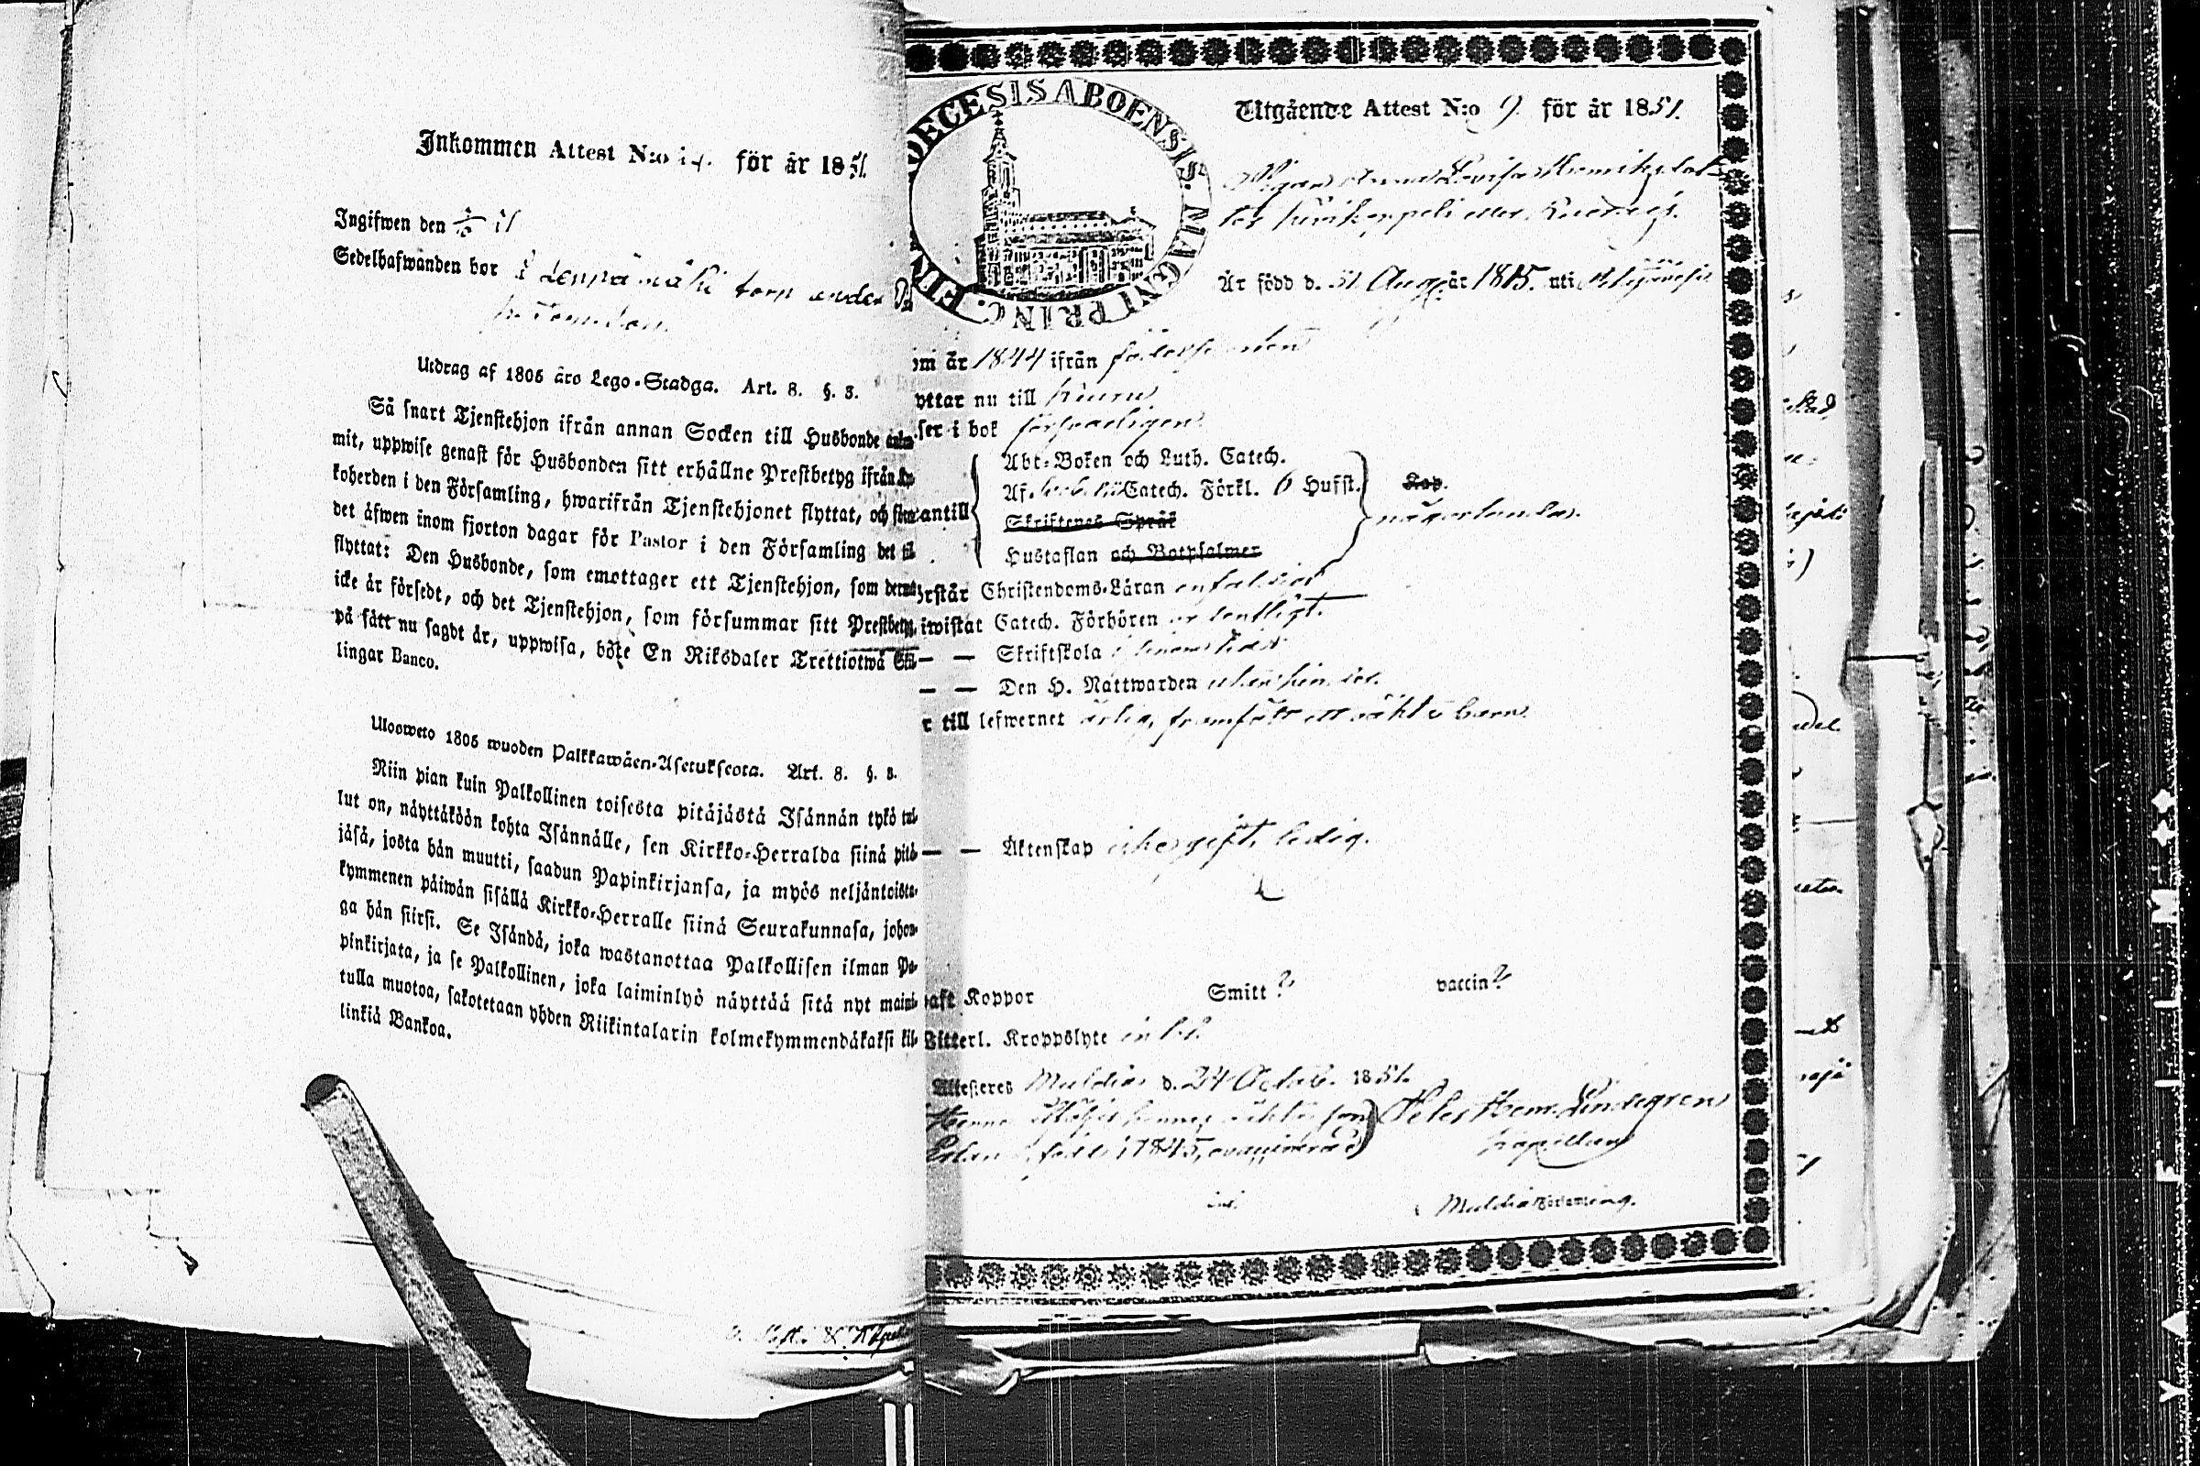 Inkommen Attest N:o för år 1851.
Ingifwen den
Sedelhafwanden bor torp under
Utdrag af 1805 åro Lego-Stadga. Art. 8. §. 3.
Så snart Tjenstehjon ifrån annan Socken till Husbonde
mit, uppwise genast för Husbonden sitt erhållne Prestbetyg ifrån
koherden i den Församling, hwarifrån Tjenstehjonet flyttat, och
det åfwen inom fjorton dagar för Pastor i den Församling det
flyttat: Den Husbonde, som emottager ett Tjenstehjon, som
icke är försedt, och det Tjenstehjon, som försummar sitt Prestbetyg,
på sätt nu sagdt är, uppwisa, böte En Riksdaler Trettiotwå Skil-
lingar Banco.
Ulosweto 1805 wuoden Palkkawäen-Asetuksesta. Art. 8. §. 3.
Niin pian kuin Palkollinen toisesta pitäjästä Isännän tykö tul-
lut on, näyttäköön kohta Isännälle, sen Kirkko-Herralda siinä pitä-
jäsä, josta hän muutti, saadun Papinkirjansa, ja myös neljäntoista-
kymmenen päiwän sisällä Kirkko-Herralle siinä Seurakunnasa, johon-
ga hän siirsi. Se Isändä, joka wastanottaa Palkollisen ilman Pa-
pinkirjata, ja se Palkollinen, joka laiminlyö näyttää sitä nyt maini-
tulla muotoa, sakotetaan yhden Riikintalarin kolmekymmendäkaksi kil-
linkiä Bankoa.
OECESIS ABOENSIS. MAGNI PRINC. FIN
Utgående Attest N:o 9 för år 1851.
Pigan Anna Lovisa Henriksdot-
ter
Är född d. 31 Aug. år 1815. uti
om år 1844 ifrån födelseorten
yttar nu till Kuru
ser i bok försvarligen
Abc-Boken och Luth. Catech.
Af Catech. Förkl. 6 Hufst. Kap.
antill Skriftenes Språk någorlunda.
Hustaflan och Botpsalmer
rstår Christendoms-Läran enfaldigt
iwistat Catech. Förhören ordentligt.
— — Skriftskola i sinom tid
— — Den H. Nattwarden
r till lefwernet ärlig, framfödt ett oäkta barn.
— — Äktenskap icke gift, ledig.
haft Koppor Smitt? vaccin?
Witterl. Kroppslyte
Attesteres Muldia d. 24 Octob. 1851.
Henne åtföljer hennes oäkta son Peter Henr. Lindegren
född 1845, ovaccinerad) Kapellan
i Muldia Församling.